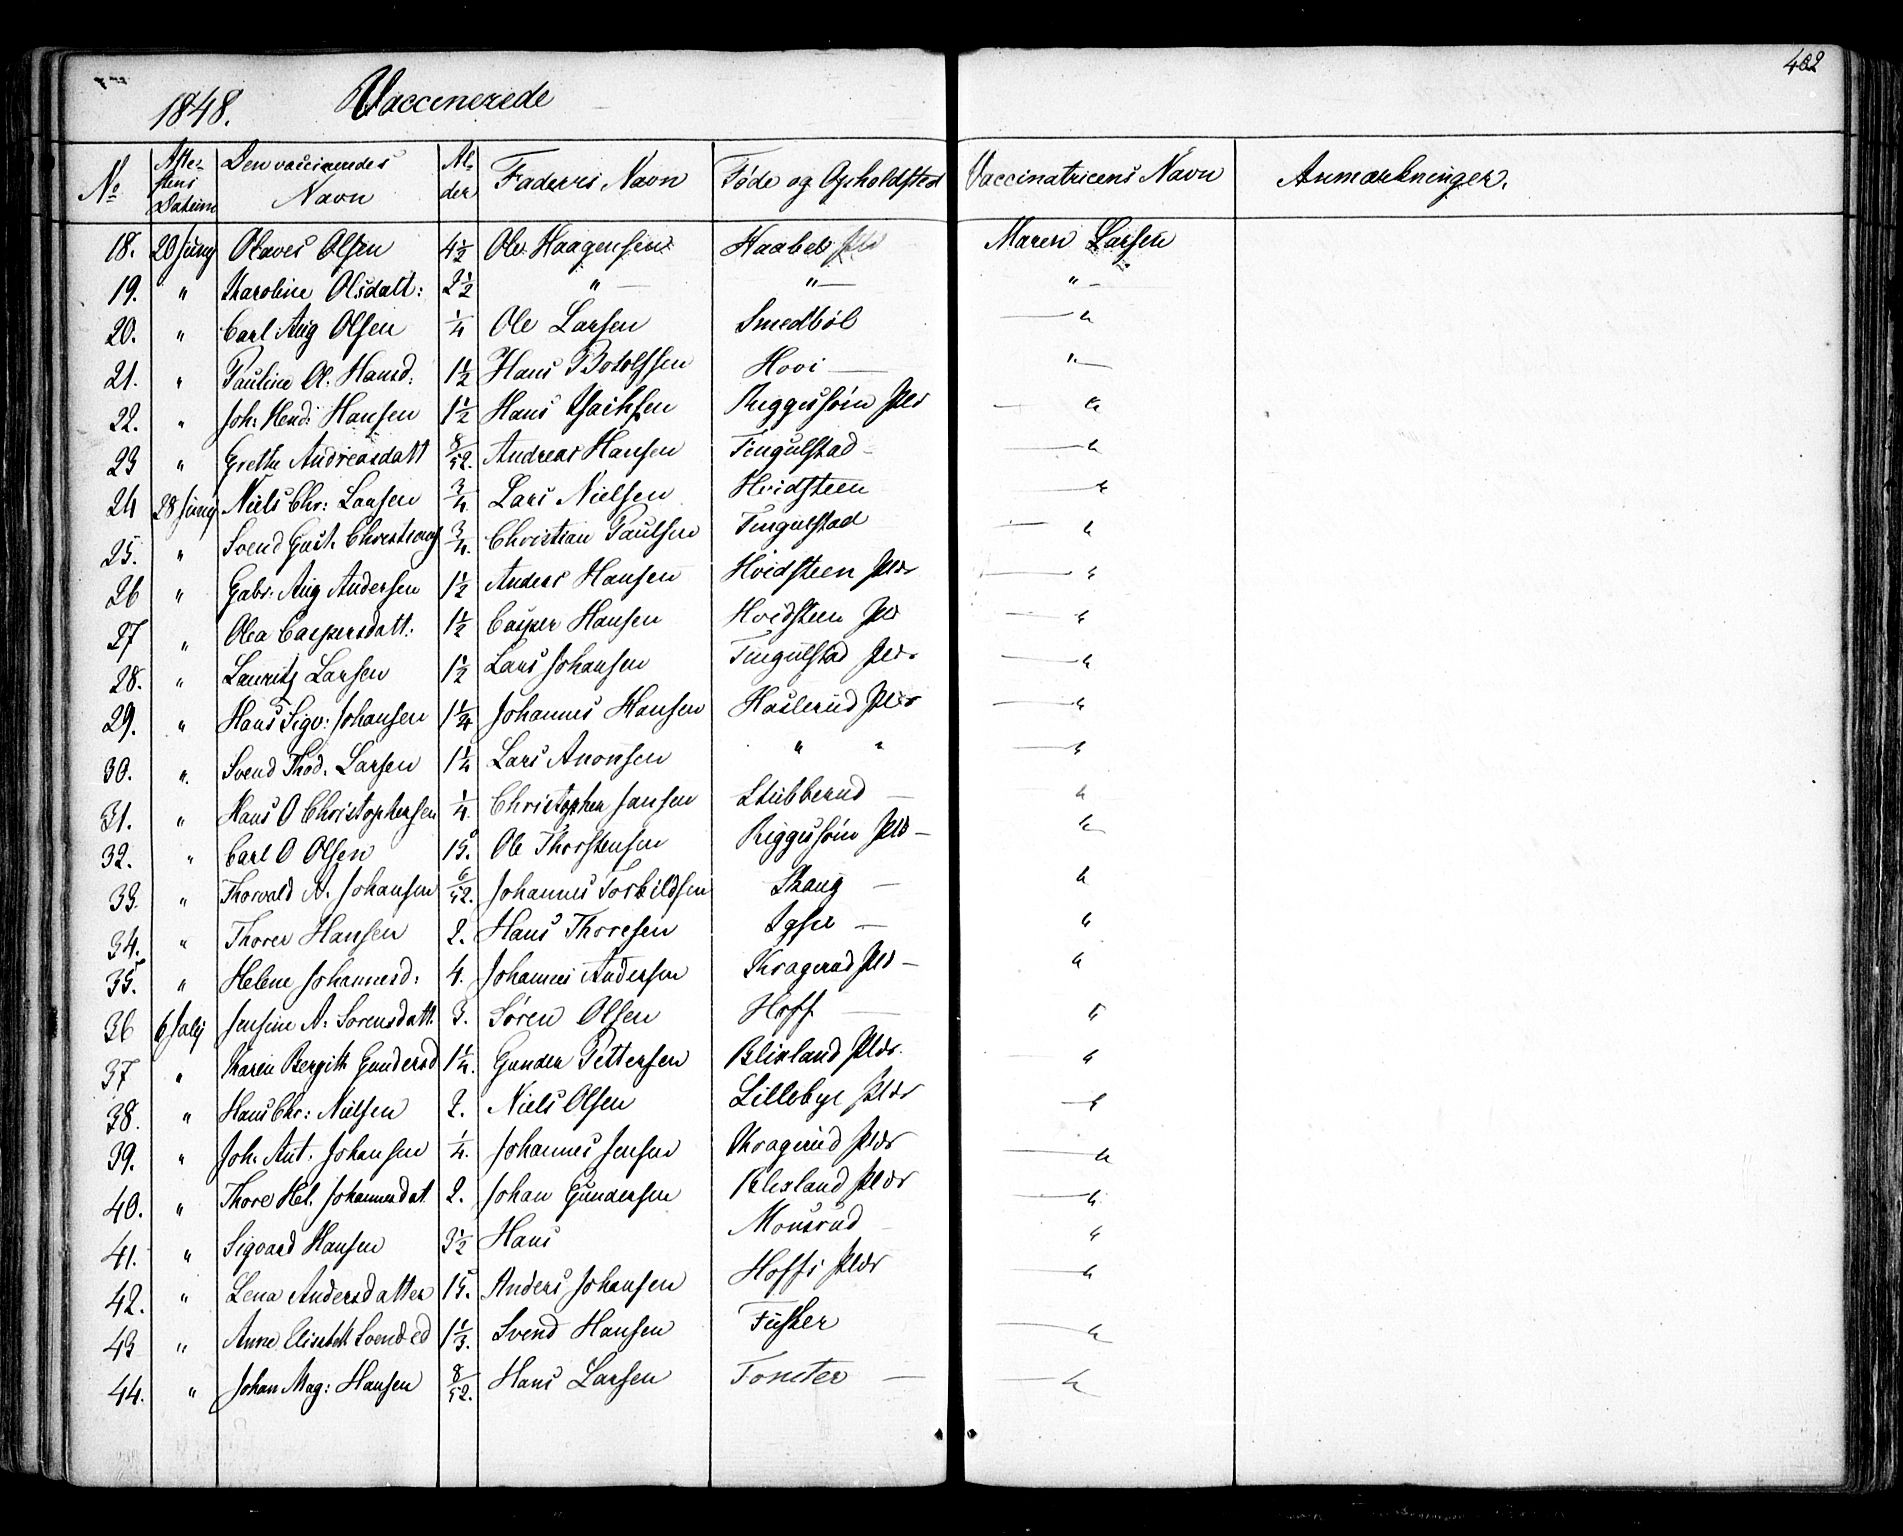 402
1848. Vaccinerede
No Atte- stens Datum Den vaccineredes Navn Al- der Faderens Navn Føde og Opholdsted Vaccinatricens Navn Anmærkninger.
18. 20 Juny Olaves Olsen 4 1/2 Ole Haagensen Haabel Plds Maren Larsen
19. " Karoline Olsdatt: 2 1/2 " — " — " —
20. " Carl Aug Olsen 1/4 Ole Larsen Smedbøl — "
21. " Pauline O. Hansd: 1 1/2 Hans Botolfsen Hovi — " —
22. " Joh: Hend: Hansen 1 1/2 Hans Isaksen Ruggesøin Plds — "
23 " Grethe Andreasdatt 8/52. Andreas Hansen Tingulstad — — "
24 28 Juny Niels Chr: Larsen 3/4 Lars Nielsen Hvidsteen — "
25. " Svend Gust. Christians 3/4. Christian Paulsen Tingulstad — "
26 " Gabr: Aug Andersen 1 1/2 Anders Hansen Hvidsteen Plds — "
27 " Olea Caspersdatt: 1 1/2 Casper Hansen Hvidsteen Plds — "
28. " Lauritz Larsen 1 1/2 Lars Johansen Tingulstad Plds — "
29. " Hans Sigv: Johansen 1 1/4 Johannes Hansen Haslerud Plds — "
30. " Svend Thod. Larsen 1 1/4 Lars Anonsen " " — "
31. " Hans O Christophersen 1/4. Christopher Jansen Stubberud — "
32. " Carl O Olsen 15. Ole Thorstensen Riggesøin Plds — "
33. " Thorvald A. Johansen 6/52. Johannes Torkildsen Skaug — "
34. " Thorer Hansen 2. Hans Thoresen Igser — "
35. " Helene Johannesd: 4. Johannes Andersen Kragerud Plds — "
36 6 July Jensine A. Sorensdatt. 3. Søren Olsen Hoff — "
37 " Karen Bergith Gundersd 1 1/4. Gunder Pettersen Blixland Plds. "
38. " Hans Chr: Nielsen 2. Niels Olsen Lillebye Plds — "
39. " Joh. Ant. Johansen 1/4. Johannes Jensen Kragerud Plds — "
40. " Thore Hel. Johannesdat 2. Johan Gundersen Blixland Plds — "
41. " Sigvard Hansen 3 1/2 Hans Monsrud — "
42. " Lena Andersdatter 15. Anders Johansen Hoffs Plds — "
43 " Anne Elisabeth Svendsd 1 1/3. Svend Hansen Fusker — "
44. " Johan Mag: Hansen 8/52. Hans Larsen Tomter — — "